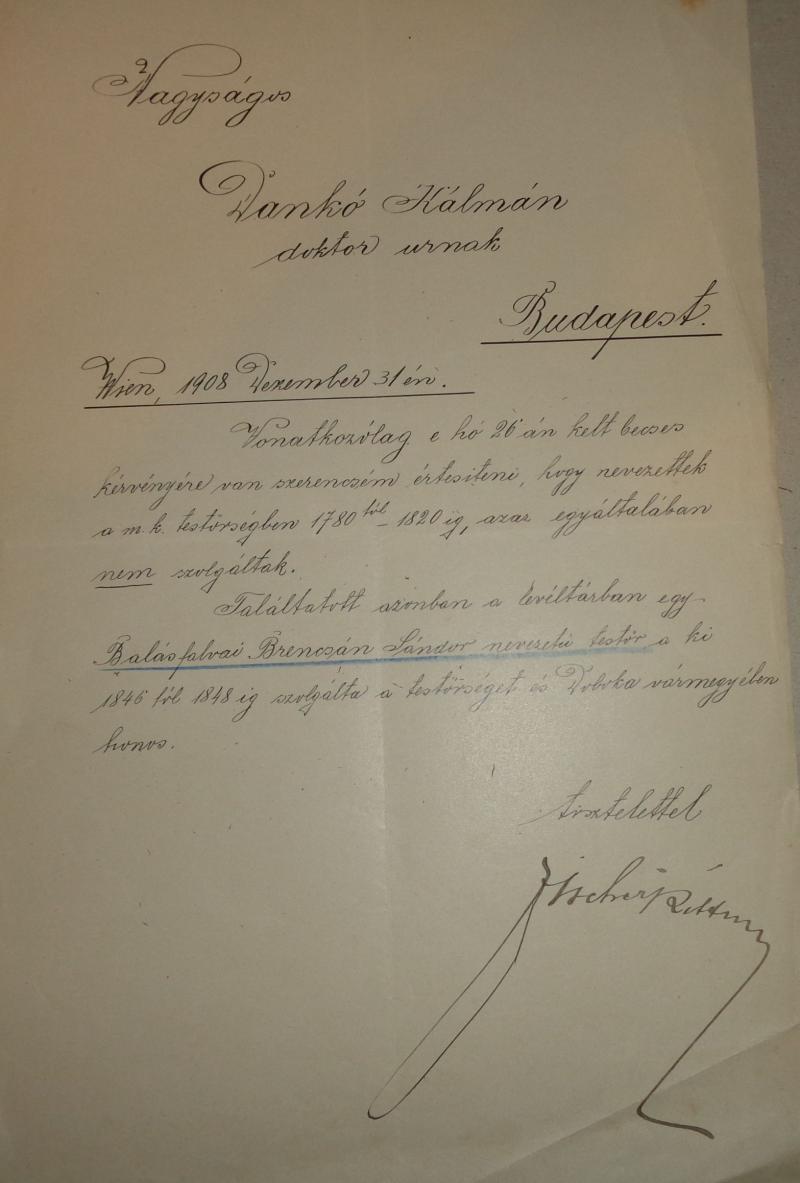 Nagyságos
Dankó Kálmán
doktor urnak
Budapest.
Wien, 1908 Dezember 31 én.
Vonatkozólag e hó 26 án kelt becses
kérvényére van szerencsém értesiteni, hogy nevezettek
a m. k. testörségben 1780 től – 1820 ig, azaz egyáltalában
nem szolgáltak.
Találtatott azonban a levéltárban egy
Balásfalvai Brencsán Sándor nevezetü testör a ki
1846 tól 1848 ig szolgálta a testörséget és Doboka vármegyében
honos.
tisztelettel